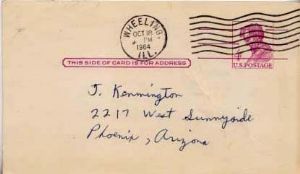 WHEELING,
OCT 18
PM
1964
ILL.
U.S. POSTAGE
THIS SIDE OF CARD IS FOR ADDRESS
J. Kennington
2217 West Sunnyside
Phoenix, Arizona